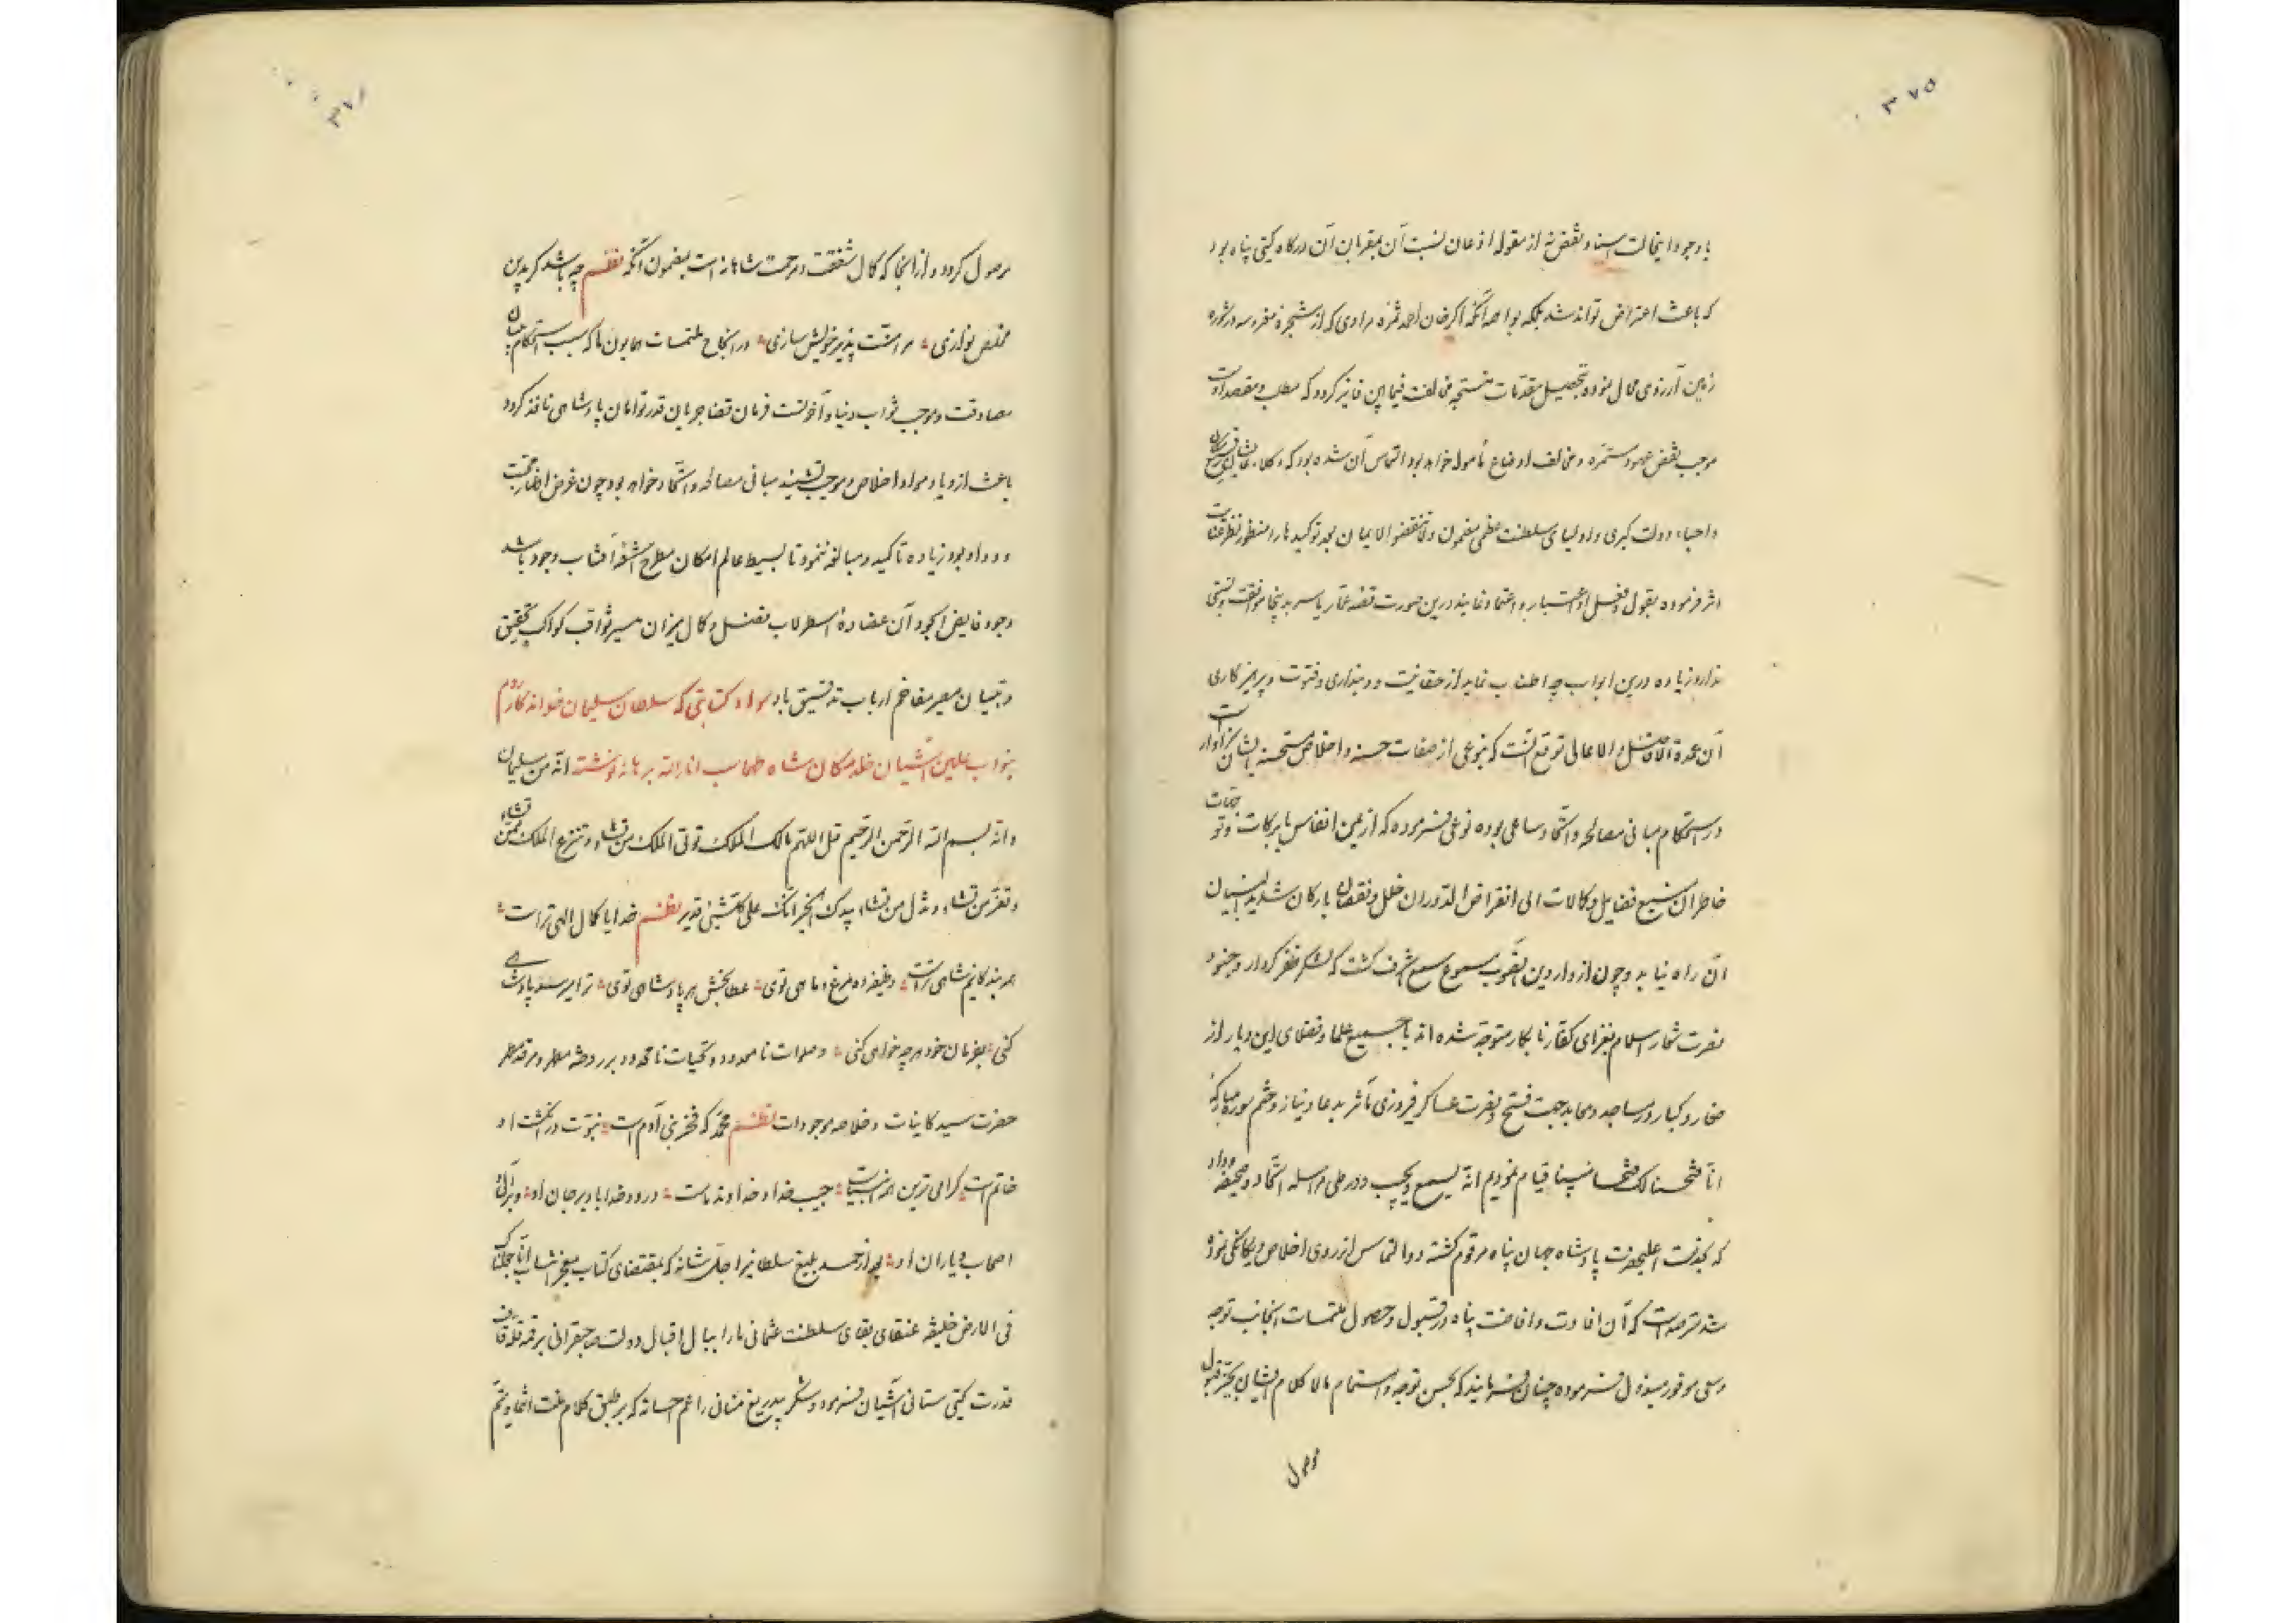 ۳۷۵
با وجود اینحالت اسناد نقض نه از مقوله اذعان نسبت آن بمقربان آن درگاه گیتی پناه بود
که باعث اعتراض تواند شد بلکه بواسطه آنکه اگر خان احمد ثمره مرادی که از شجره مغروسه در شوره
زمین آرزوی محال نموده بتحصیل مقدمات منتجه مخالفت فیما بین فایز گردد که مطلب و مقصد اوست
موجب نقض عهود مستمره و مخالف اوضاع مأموله خواهد بود التماس آن شده بود که وکلاء
و احباء دولت کبری و اولیای سلطنت عظمی مضمون ولا تنقضوا الایمان بعد توکیدها را منظور نظر
اثر فرموده بقول و فعل او اعتبار و اعتماد ننمایند درین صورت قصه عمار یاسر بدینجا موافقت و نسبتی
ندارد زیاده درین ابواب چه اطناب نماید از حقانیت و دینداری و فتوت و پرهیزکاری
آن عمدة الافاضل و الاعالی توقع آنست که بنوعی از صفات حسنه و اخلاص مستحسنه ایشان سزاوار است
در استحکام مبانی مصالحه و اتحاد ساعی بوده نوعی فرموده که از یمن انفاس با برکات و توجهات
خاطر آن منبع فضایل و کمالات الی انقراض الدوران خلل و نقصان بارکان شدید البنیان
آن راه نیابد و چون از واردین آنصوب مسموع سمع اشرف گشت که لشکر ظفر کردار و جنود
نصرت شعار اسلام بغزای کفار نابکار متوجه شده اند با جمیع علما و فضلای این دیار از
صغار و کبار در مساجد و معابد جهت فتح و نصرت عساکر فیروزی مآثر بدعا و نیاز و ختم سوره مبارکه
انا فتحنا لک فتحا مبینا قیام نمودیم انه لسمیع مجیب و در طی مراسله اتحاد و صحیفه وداد
که بخدمت اعلیحضرت پادشاه جهان پناه مرقوم گشته دو التماس از روی اخلاص و یگانگی نموده
شد مترصد است که آن افادت و افاضت پناه در قبول و حصول ملتمسات اینجانب توجه
و سعی موفور مبذول فرموده چنان فرمایند که بحسن توجه و اهتمام مالا کلام ایشان بحیز قبول
موصول
۳۷۶
موصول گردد و از آنجا که کمال شفقت و مرحمت شاهانه است بمضمون آنکه نظم چه باشد گر بدین
مخلص نوازی مرا منت پذیر خویش سازی در انجاح ملتمسات همایون ما که سبب استحکام بنیان
مصادقت و موجب ثواب دنیا و آخرتست فرمان قضا جریان قدر توامان پادشاهی نافذ گردد
باعث ازدیاد مواد اخلاص و موجب تشیید مبانی مصالحه و اتحاد خواهد بود چون غرض اظهار محبت
و وداد بود زیاده تاکید و مبالغه ننمود تا بسیط عالم امکان مطرح اشعه آفتاب وجود باشد
وجود فایض الجود آن عضاده اسطرلاب فضل و کمال میزان مسیر ثواقب کواکب تحقیق
و تبیان معیر مفاخر ارباب تدقیق باد سواد کتابتی که سلطان سلیمان خواندکار روم
بنواب علیین آشیان خلد مکان شاه طهماسب انار الله برهانه نوشته انه من سلیمان
وانه بسم الله الرحمن الرحیم قل اللهم مالک الملک توتی الملک من تشاء و تنزع الملک ممن تشاء
و تعز من تشاء و تذل من تشاء بیدک الخیر انک علی کل شیئ قدیر نظم خدایا کمال الهی تراست
همه بندگانیم شاهی تراست وظیفه ده مرغ و ماهی توی عطابخش هر پادشاهی توی ترا میرسد پادشاهی
کنی بفرمان خود هر چه خواهی کنی و صلوات نامعدود و تحیات نامحدود بر روضه مطهر و مرقد معطر
حضرت سید کاینات و خلاصه موجودات نظم محمد که فخر بنی آدم است نبوت در انگشت او
خاتم است گرامی ترین همه انبیاست حبیب خدا و خداوند ماست درود خدا باد بر جان او و بر آل و
اصحاب و یاران او بعد از حمد بلیغ سلطانیرا جل شانه که بمقتضای کتاب معجز انتساب انا جعلناک
فی الارض خلیفة عنقای بقای سلطنت عثمانی ما را ببال اقبال دولت صاحبقرانی بر قمه قله قاف
قدرت گیتی ستانی آشیان فرمود و شکر بیدریغ منانی را عم احسانه که بر طبق کلام